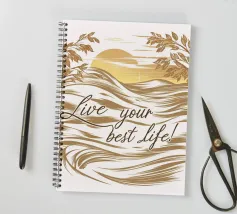 Live your
best life!